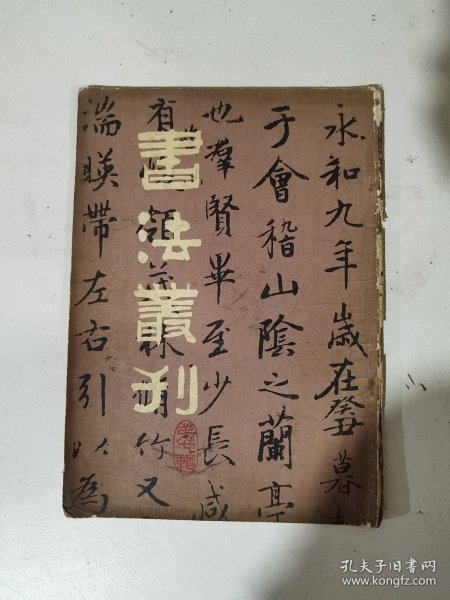 永和九年歲在癸丑暮
于會稽山陰之蘭亭
也羣賢畢至少長咸
有領茂林脩竹又
湍暎帶左右引以為
書法叢刊
孔夫子旧书网
www.kongfz.com